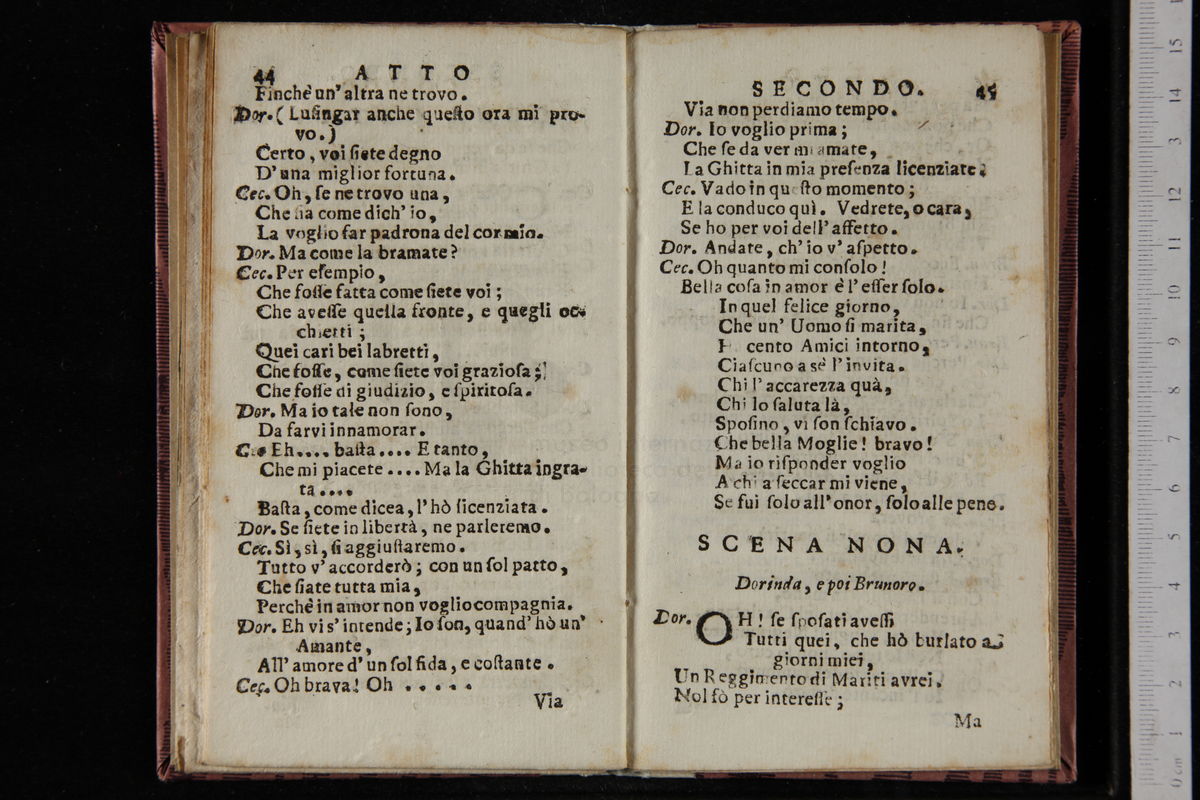 44 ATTO
Finchè un' altra ne trovo.
Dor. ( Luſingar anche queſto ora mi pro-
vo.)
Certo, voi ſiete degno
D' una miglior fortuna.
Cec. Oh, ſe ne trovo una,
Che ſia come dich' io,
La voglio far padrona del cor mio.
Dor. Ma come la bramate?
Cec. Per eſempio,
Che foſſe fatta come ſiete voi;
Che aveſſe quella fronte, e quegli oc-
chietti;
Quei cari bei labretti,
Che foſſe, come ſiete voi grazioſa;
Che foſſe di giudizio, e ſpiritoſa.
Dor. Ma io tale non ſono,
Da farvi innamorar.
Cec. Eh.... baſta.... E tanto,
Che mi piacete.... Ma la Ghitta ingra-
ta....
Baſta, come dicea, l' hò licenziata.
Dor. Se ſiete in libertà, ne parleremo.
Cec. Sì, sì, ſi aggiuſtaremo.
Tutto v' accorderò; con un ſol patto,
Che ſiate tutta mia,
Perchè in amor non voglio compagnia.
Dor. Eh vi s' intende; Io ſon, quand' hò un'
Amante,
All' amore d' un ſol fida, e coſtante.
Cec. Oh brava! Oh .....
Via
SECONDO. 45
Via non perdiamo tempo.
Dor. Io voglio prima;
Che ſe da ver mi amate,
La Ghitta in mia preſenza licenziate.
Cec. Vado in queſto momento;
E la conduco quì. Vedrete, o cara,
Se ho per voi dell' affetto.
Dor. Andate, ch' io v' aſpetto.
Cec. Oh quanto mi conſolo!
Bella coſa in amor è l' eſſer ſolo.
In quel felice giorno,
Che un' Uomo ſi marita,
cento Amici intorno,
Ciaſcuno a sè l' invita.
Chi l' accarezza quà,
Chi lo ſaluta là,
Spoſino, vi ſon ſchiavo.
Che bella Moglie! bravo!
Ma io riſponder voglio
A chi a ſeccar mi viene,
Se fui ſolo all' onor, ſolo alle pene.
SCENA NONA.
Dorinda, e poi Brunoro.
Dor. OH! ſe ſpoſati aveſſi
Tutti quei, che hò burlato a'
giorni miei,
Un Reggimento di Mariti avrei.
Nol fò per intereſſe;
Ma